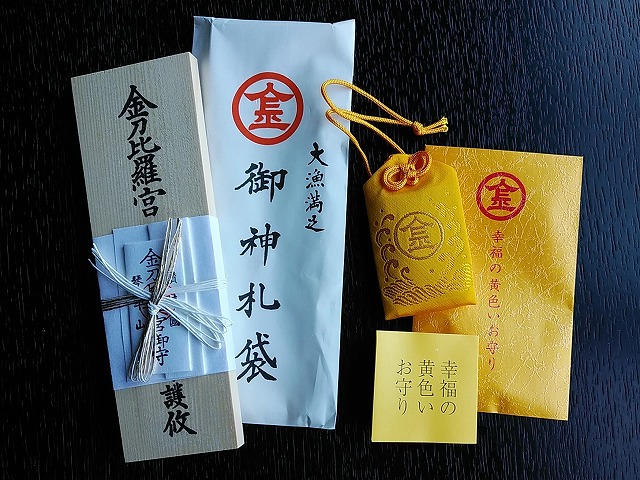 金刀比羅宮
護攸
金刀比羅宮御守
金
大漁満足
御神札袋
金
金
幸福の黄色いお守り
幸福の
黄色い
お守り